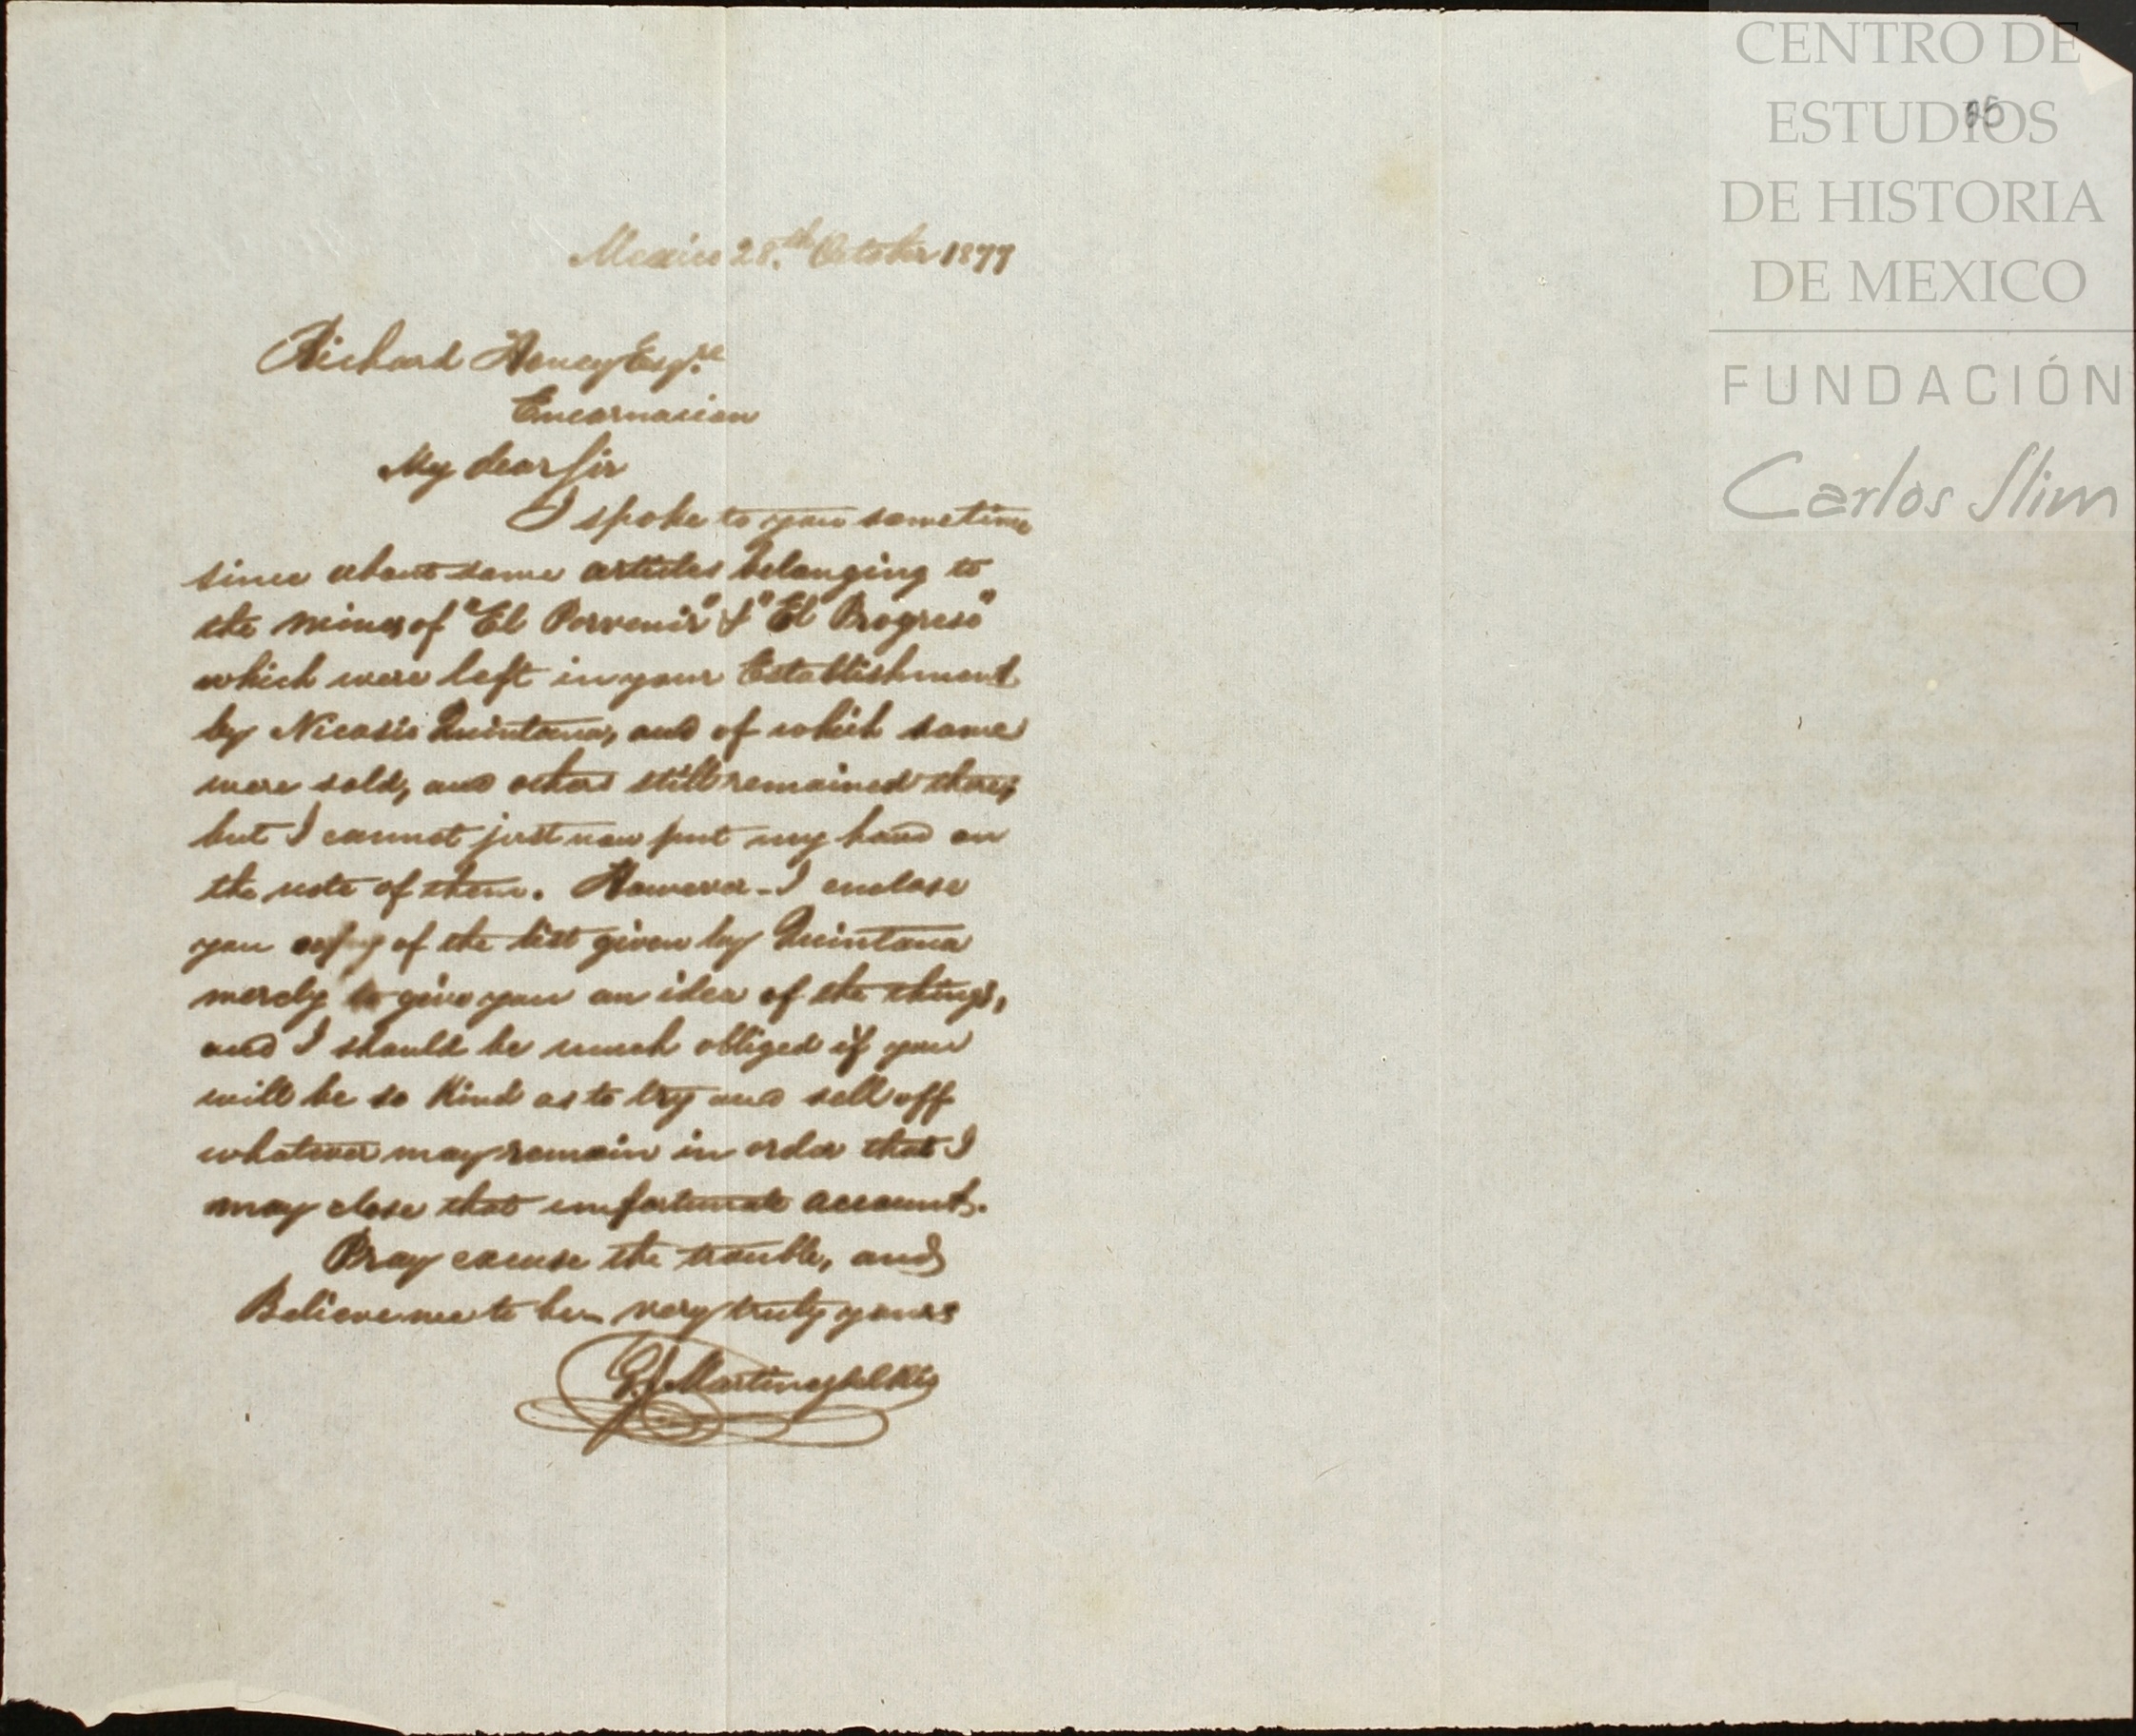 Mexico 28.th October 1877
Richard Honey Esqre.
Encarnacion
My dear Sir
I spoke to you sometime
since about some articles belonging to
the mines of "El Porvenir" & "El Progreso"
which were left in your Establishment
by Nicasio Quintana, and of which some
were sold, and others still remained there,
but I cannot just now put my hand on
the note of them. However - I enclose
you copy of the list given by Quintana
merely to give you an idea of the things,
and I should be much obliged if you
will be so kind as to try and sell off
whatever may remain in order that I
may close that unfortunate account.
Pray excuse the trouble, and
Believe me to be - very truly yours
Martinez del Rio
CENTRO DE
ESTUDIOS
DE HISTORIA
DE MEXICO
FUNDACIÓN
Carlos Slim